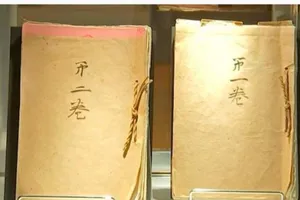 第一卷
第二卷